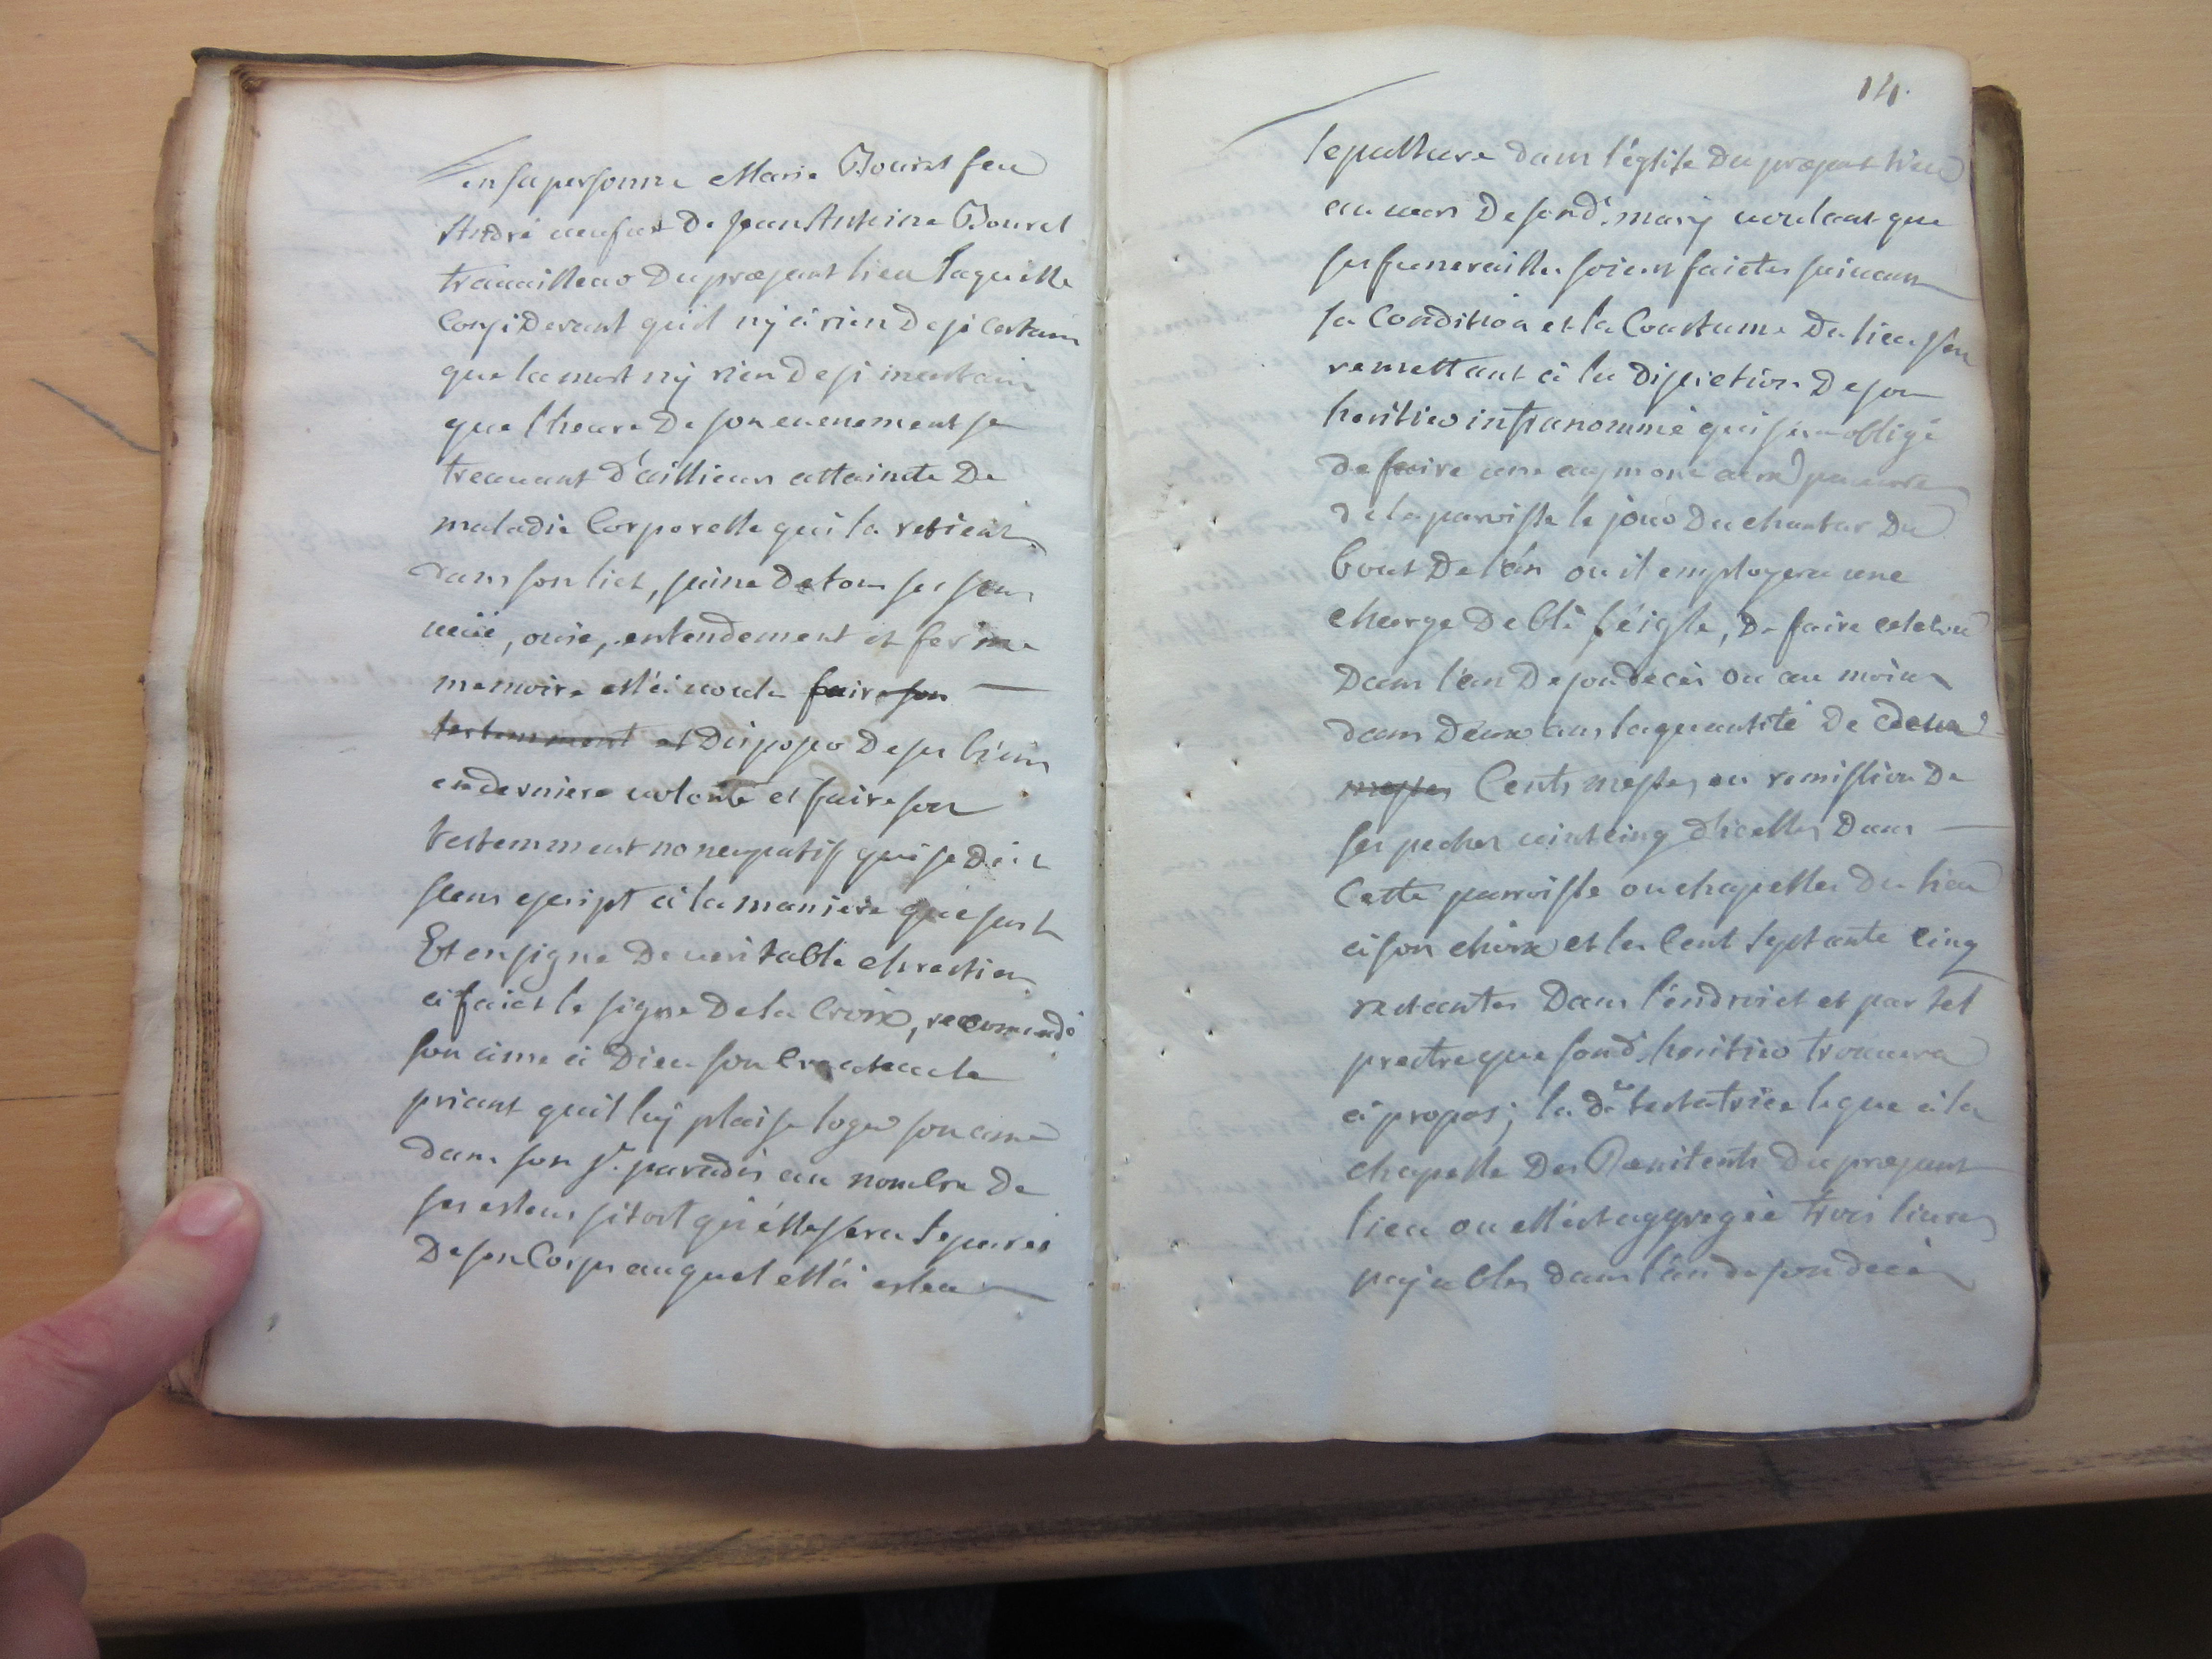 en sa personne Marie Bouret feu
André veufve de Jean Antoine Bouret
travailleur du præsent lieu laquelle
Considerant qu'il ny a rien de si certain
que la mort ny rien de si incertain
que l'heure de son evenement se
treuvant d'aillieurs attainte de
maladie Corporelle qui la retient
dans son lict, saine de tous ses sens
veüe, ouie, entendement et ferme
memoire ell'a voulu faire son
testemment et disposer de ses biens
en derniere volonté et faire son
testemment noncupatif qui se dict
sens escript a la maniere que suit
Et en signe de veritable chrestien
a faict le signe de la Croix, recomandé
son ame a Dieu son Createur le
priant qu'il luy plaise loger son ame
dans son st. paradis au nombre de
ses esleus sitost qu'elle sera separée
de son Corps auquel ell'a esleu
14.
sepulture dans l'église du præsent lieu
au vas de sond. mary voulant que
ses funerailles soient faictes suivant
sa Condition et la Coustume du lieu s'en
remettant a la discretion de son
heritier infranommé qui sera obligé
de faire une aumone aux pauvres
de la parroisse le jour du chantar du
bout de l'an ou il employera une
charge de blé séigle, de faire celebrer
dans l'an de son deces ou au moins
dans deux ans la quantité de deux
messes Cents messes en remission de
ses peches vint cinq d'icelles dans
Cette parroisse ou chapelles du lieu
a son choix et les Cent septante cinq
restantes dans l'endroict et par tel
prestre que sond. heritier trouvera
a propos; la de. testatrice legue a la
chapelle des Pænitents du præsent
lieu ou ell'est aggregée trois livres
payables dans l'an de son deces